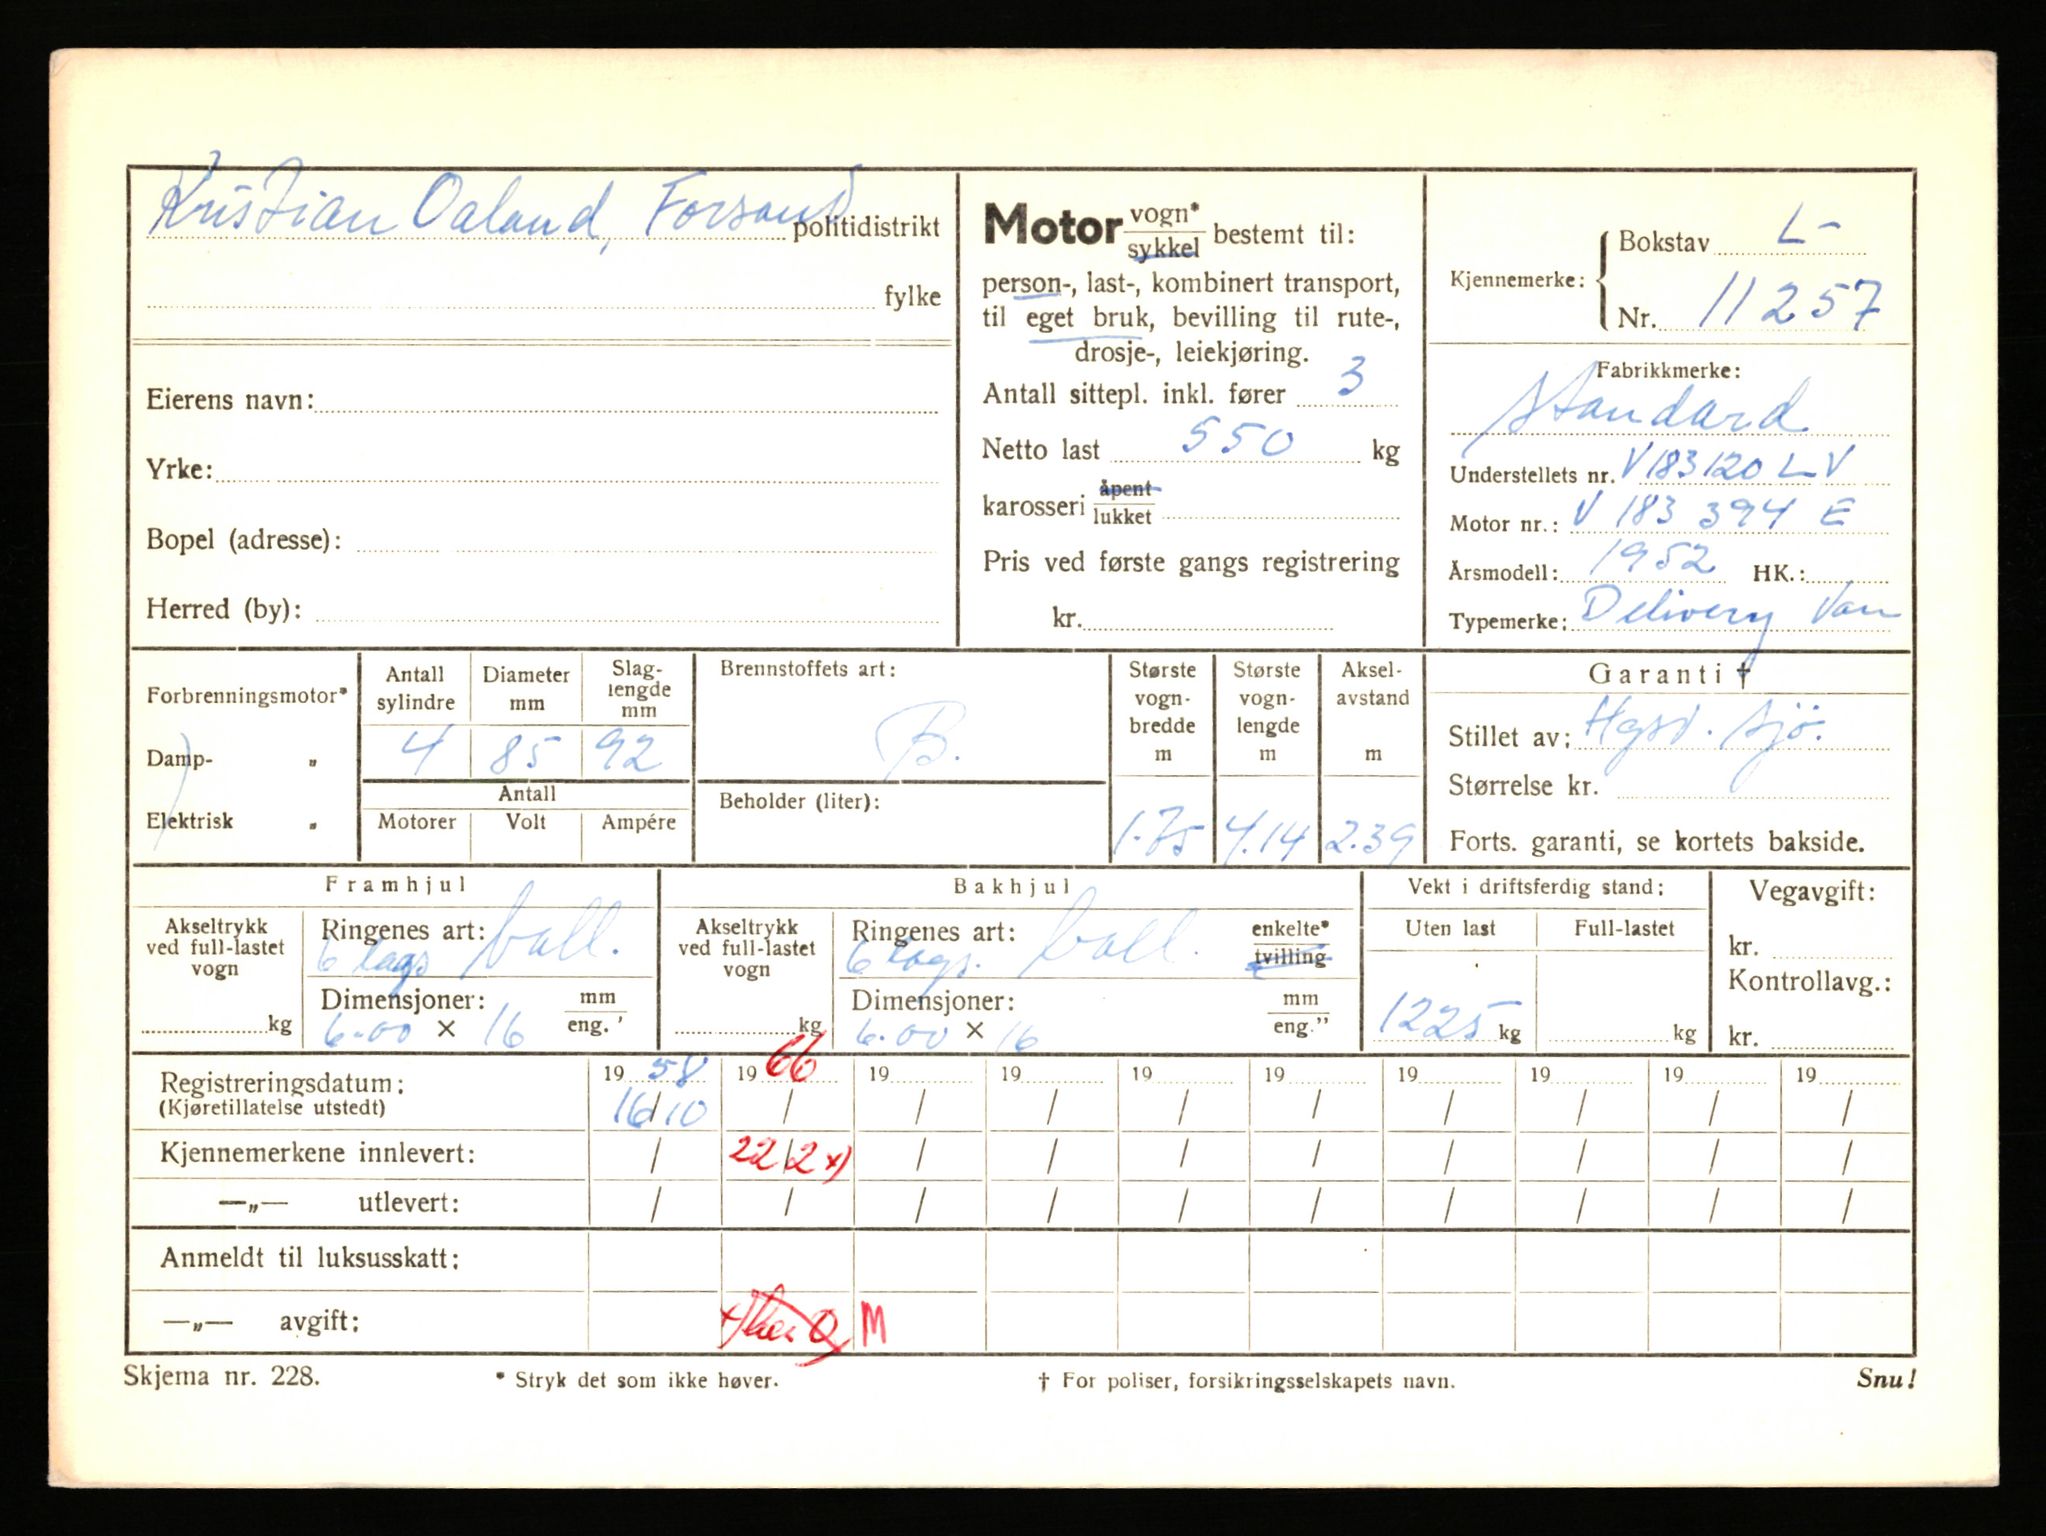 Kristian Oaland, Forsand politidistrikt
fylke
Eierens navn:
Yrke:
Bopel (adresse):
Herred (by):
Motor vogn* sykkel bestemt til:
person-, last-, kombinert transport,
til eget bruk, bevilling til rute-,
drosje-, leiekjøring.
Antall sittepl. inkl. fører 3
Netto last 550 kg
karosseri åpent lukket
Pris ved første gangs registrering
kr.
Kjennemerke: Bokstav L-
Nr. 11257
Fabrikkmerke:
Standard
Understellets nr. V183120 LV
Motor nr.: V 183 394 E
Årsmodell: 1952 HK.:
Typemerke: Delivery Van
Forbrenningsmotor*
Damp- „
Elektrisk „
Antall sylindre Diameter mm Slaglengde mm
4 85 92
Antall
Motorer Volt Ampére
Brennstoffets art:
B.
Beholder (liter):
Største vognbredde m 1.75
Største vognlengde m 4.14
Akselavstand m 2.39
Garanti †
Stillet av: Hgsd. sjø.
Størrelse kr.
Forts. garanti, se kortets bakside.
Framhjul
Akseltrykk ved full-lastet vogn kg
Ringenes art: 6 lags ball.
Dimensjoner: 6.00 × 16 mm eng. '
Bakhjul
Akseltrykk ved full-lastet vogn kg
Ringenes art: 6 lags. ball. enkelte* tvilling
Dimensjoner: 6.00 × 16 mm eng."
Vekt i driftsferdig stand:
Uten last Full-lastet
1225 kg kg
Vegavgift:
kr.
Kontrollavg.:
kr.
Registreringsdatum: 19 58 19 66 19 19 19 19 19 19 19 19
(Kjøretillatelse utstedt) 16/10 / / / / / / / / /
Kjennemerkene innlevert: / 22/2 x) / / / / / / / /
—„— utlevert: / / / / / / / / / /
Anmeldt til luksusskatt:
—„— avgift: M
Skjema nr. 228. * Stryk det som ikke høver. † For poliser, forsikringsselskapets navn. Snu!